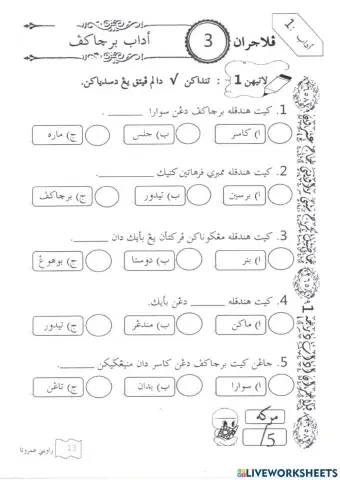 اداب 1:
ڤلاجران 3
أداب برچاکڤ
لاتيهن 1 : تنداکن √ دالم ڤيتق يڠ دسدياکن.
1. کيت هندقله برچاکڤ دڠن سوارا ______ .
ا) کاسر ب) حلس ج) ماره
2. کيت هندقله ممبري ڤرهاتين کتيک ______ .
ا) برسين ب) تيدور ج) برچاکڤ
3. کيت هندقله مڠݢوناکن ڤرکتأن يڠ بأيك دان ______.
ا) بنر ب) دوستا ج) بوهوڠ
4. کيت هندقله ______ دڠن بأيك.
ا) ماکن ب) مندڠر ج) تيدور
5. جاڠن کيت برچاکڤ دڠن کاسر دان منيڠݢيکن ______.
ا) سوارا ب) بدان ج) تاڠن
مرکه
/5
13
LIVEWORKSHEETS